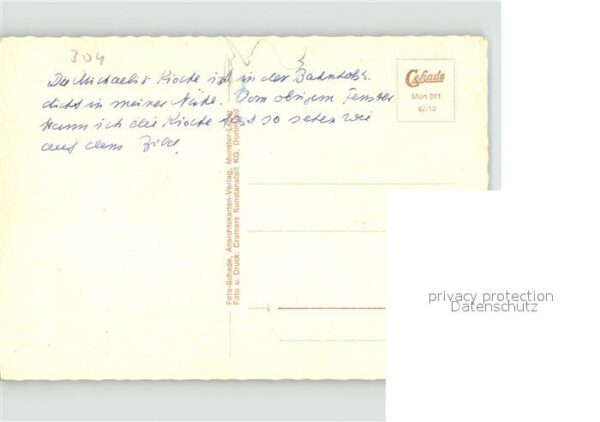 304
Die Michaelis Kirche ist in der Bahnhofstr.
dicht in meiner Nähe. Vom obigem Fenster
kann ich die Kirche fast so sehen wie
auf dem Bild.
Cekade
Mün 011
67/10
Foto-Schade, Ansichtskarten-Verlag, Munster-Lager
Foto u. Druck: Cramers Kunstanstalt KG, Dortmund
privacy protection
Datenschutz